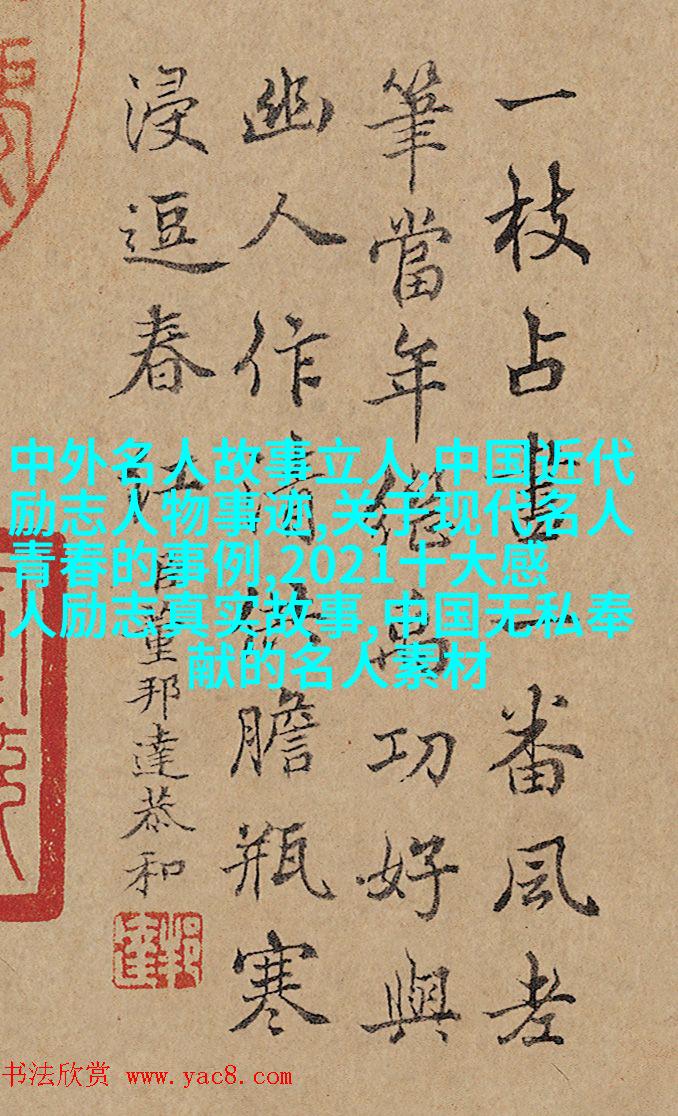 一枝占盡一番風老
筆當年繼禹功好與
幽人作清供膽瓶寒
浸逗春紅
臣董邦達恭和
中外名人故事立人,中国近代
励志人物事迹,关于现代名人
青春的事例,2021十大感
人励志真实故事,中国无私奉
献的名人素材
书法欣赏 www.yac8.com